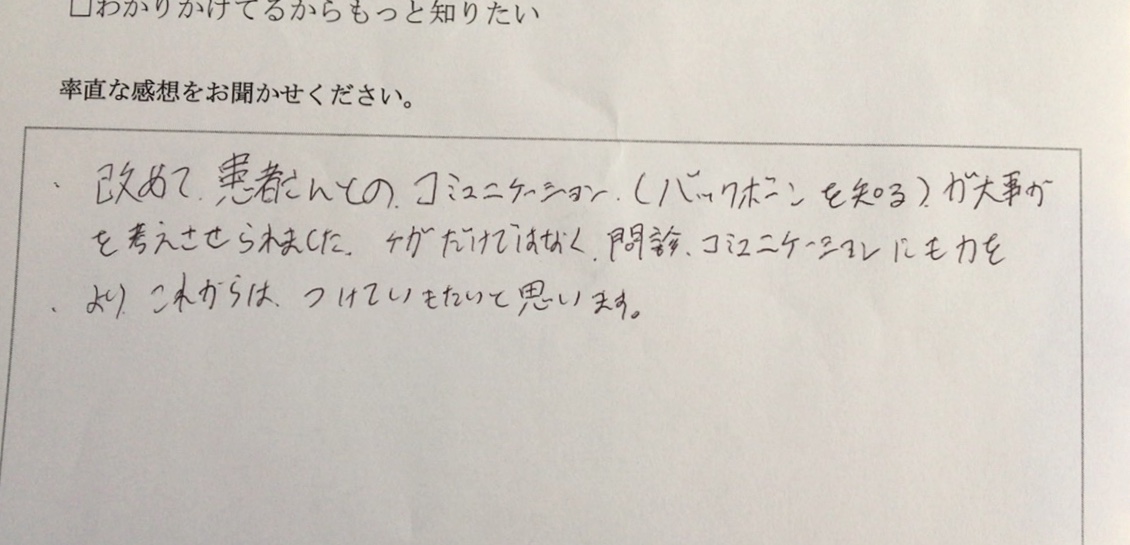 □わかりかけてるからもっと知りたい
率直な感想をお聞かせください。
改めて、患者さんとの、コミュニケーション、(バックボーンを知る)が大事か
を考えさせられました。ケガだけではなく、問診、コミュニケーションにも力を
より、これからは、つけていきたいと思います。